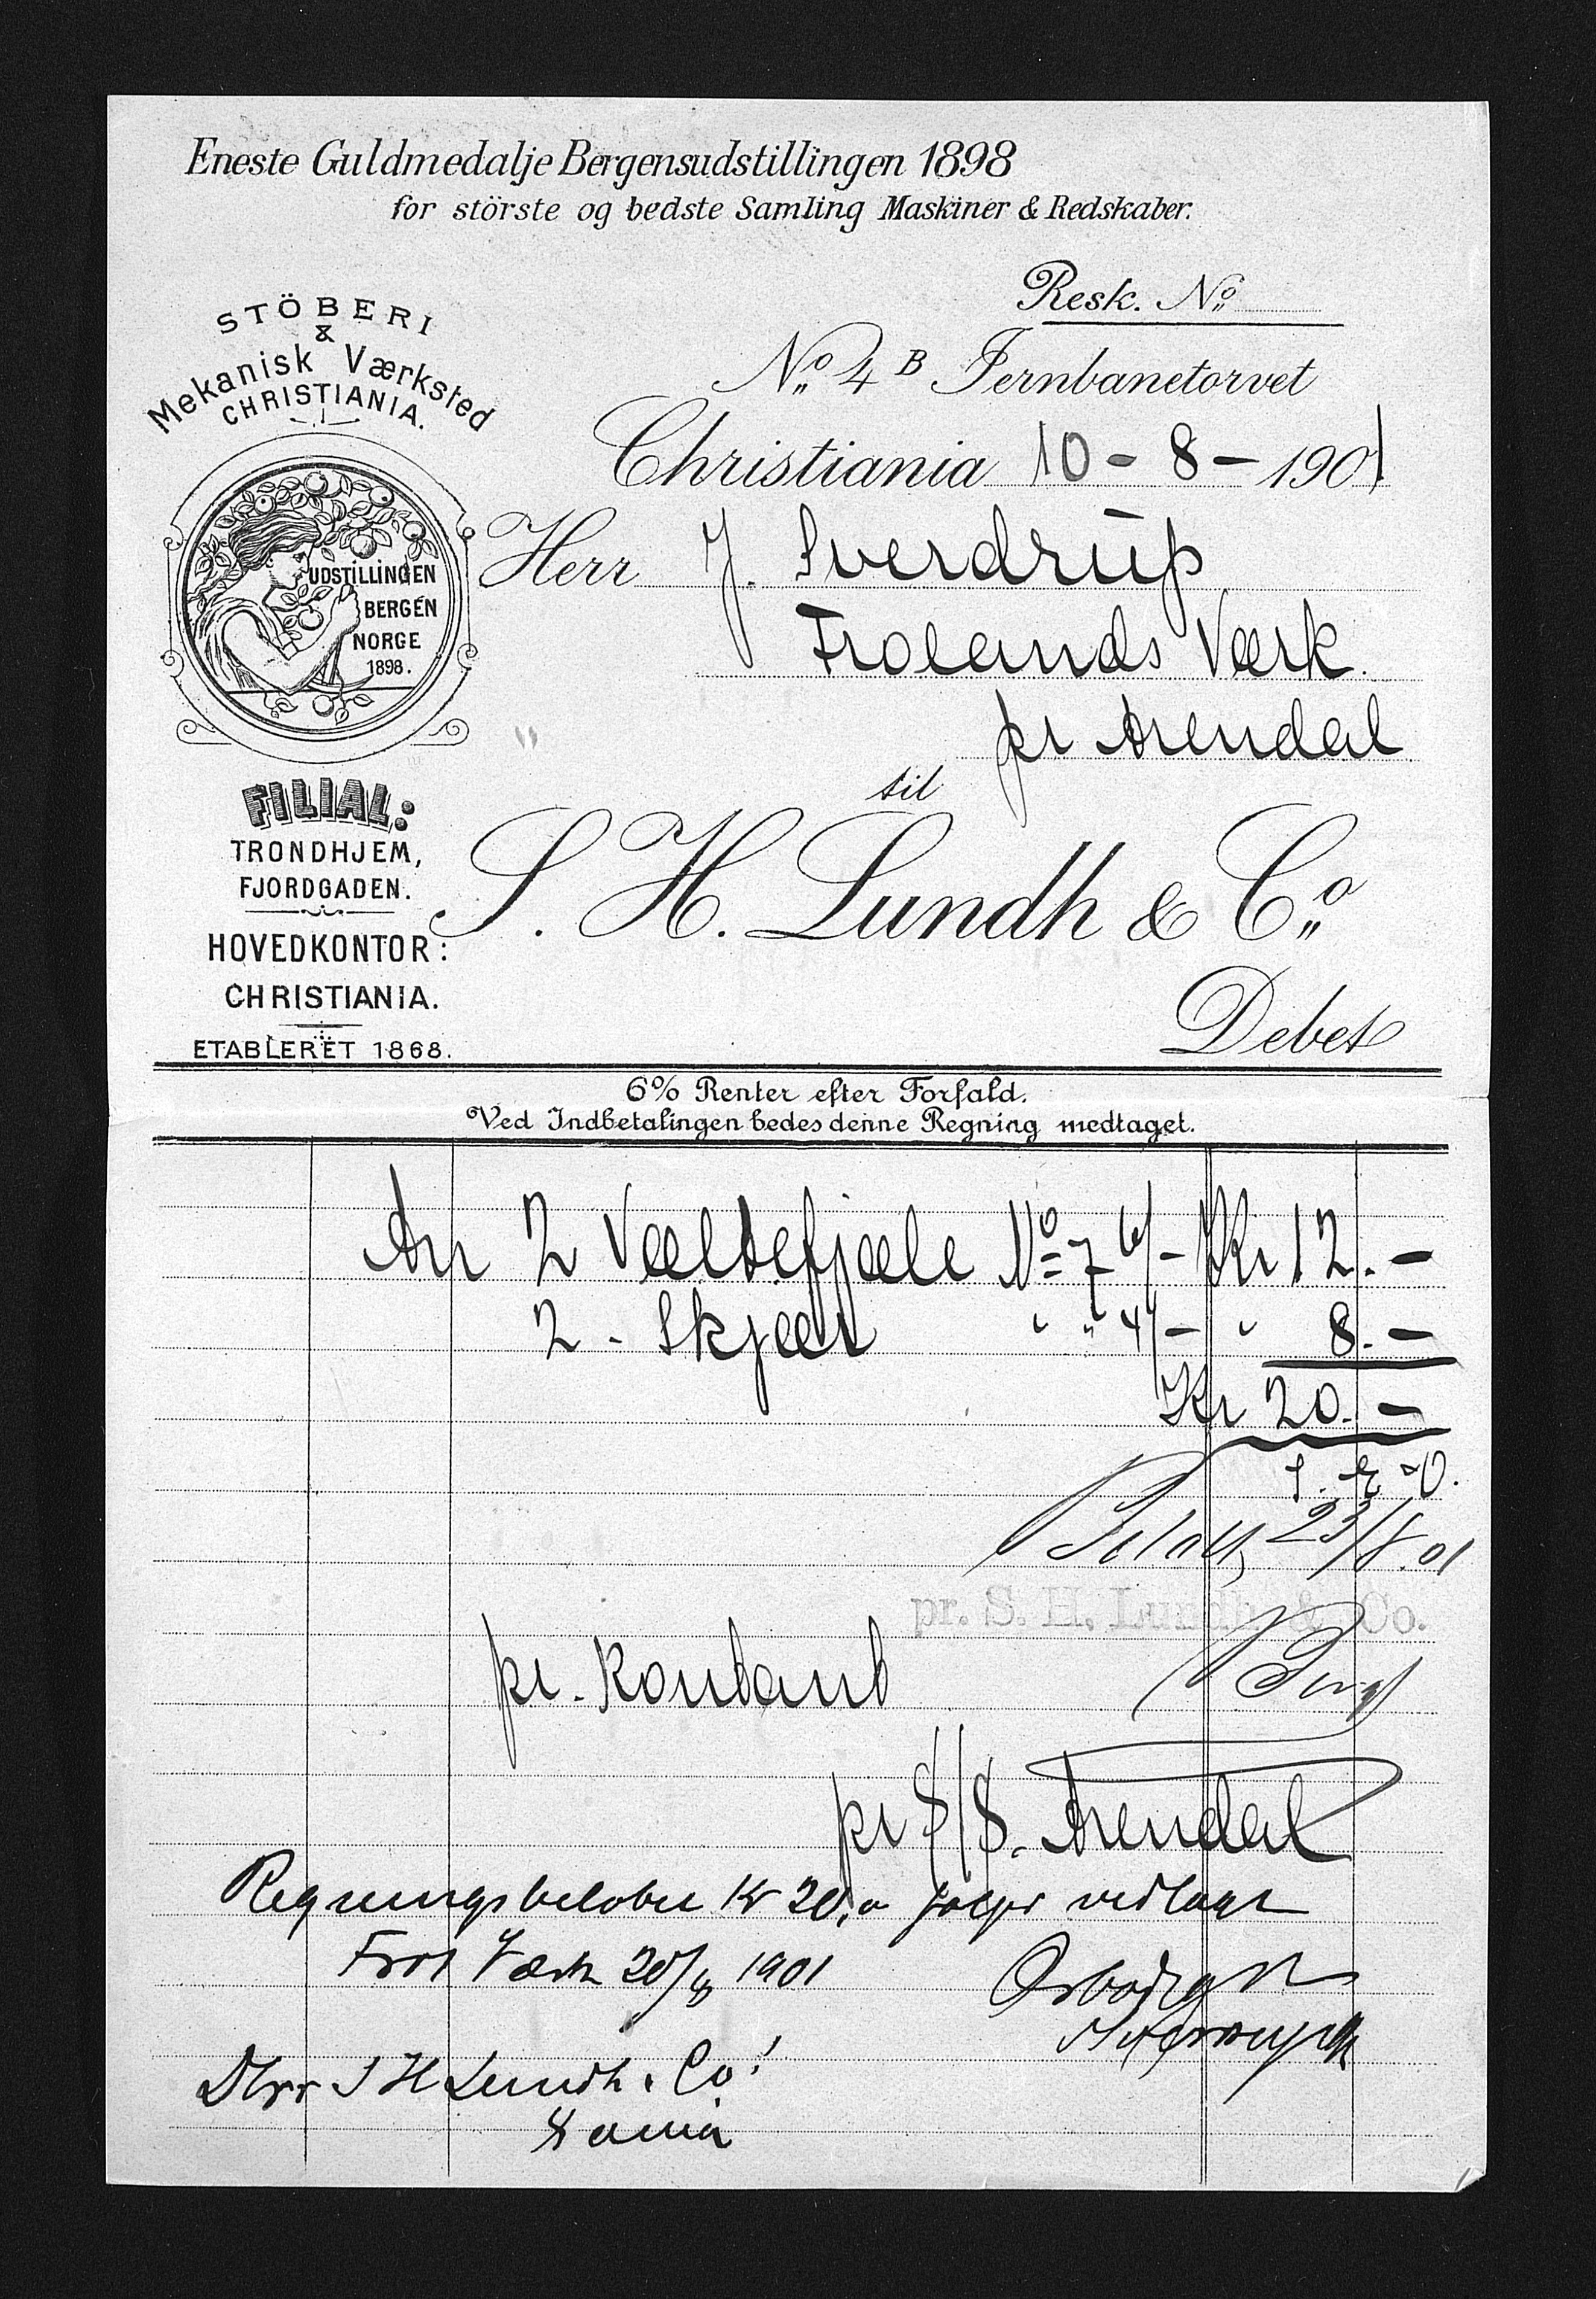 Eneste Guldmedalje Bergensudstillingen 1898
for störste og bedste Samling Maskiner & Redskaber.
Resk. No
STÖBERI
&
Mekanisk Værksted
CHRISTIANIA.
No 4 B Jernbanetorvet
Christiania 10 - 8 - 1901
UDSTILLINGEN
BERGEN
NORGE
1898.
Herr J. Sverdrup
Frolands Værk.
pr Arendal
til
FILIAL:
TRONDHJEM,
FJORDGADEN.
S. H. Lundh & Co
HOVEDKONTOR:
CHRISTIANIA.
Debet
ETABLERET 1868.
6% Renter efter Forfald.
Ved Indbetalingen bedes denne Regning medtaget.
An 2 Væltefjæle No 7 6/- Kr 12.-
2 - Skjær " " 4/- " 8.-
Kr 20.-
Betalt 23/8.01
pr. S. H. Lundh & Co.
pr. Kontant
pr S/S. Arendal
Regningsbeløbet Kr 20,o følger vedlagt
Frol Værk 20/8 1901
Ærbødigst
JSverdrup
DHrr S H Lundh & Co!
Xania